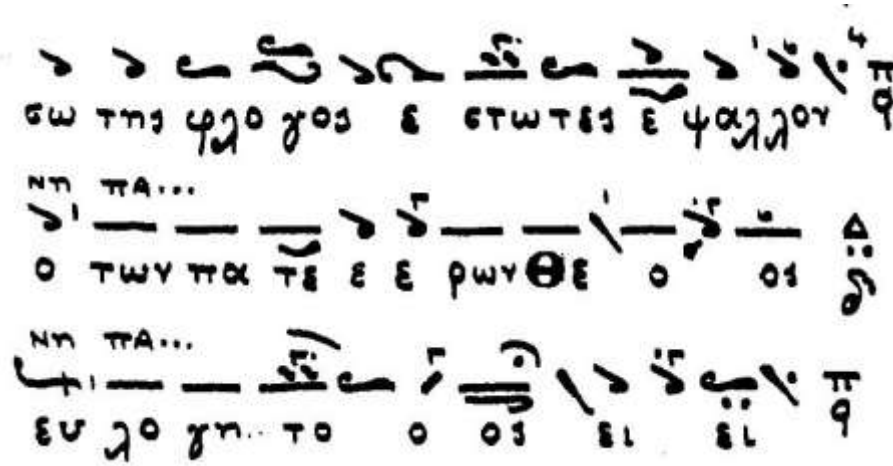 σω της φλο γος ε στω τες ε ψαλλον π q
νη πα...
ο των πα τε ε ε ρων Θε ο ος Δ
νη πα...
ευ λο γη.. το ο ος ει ει π q